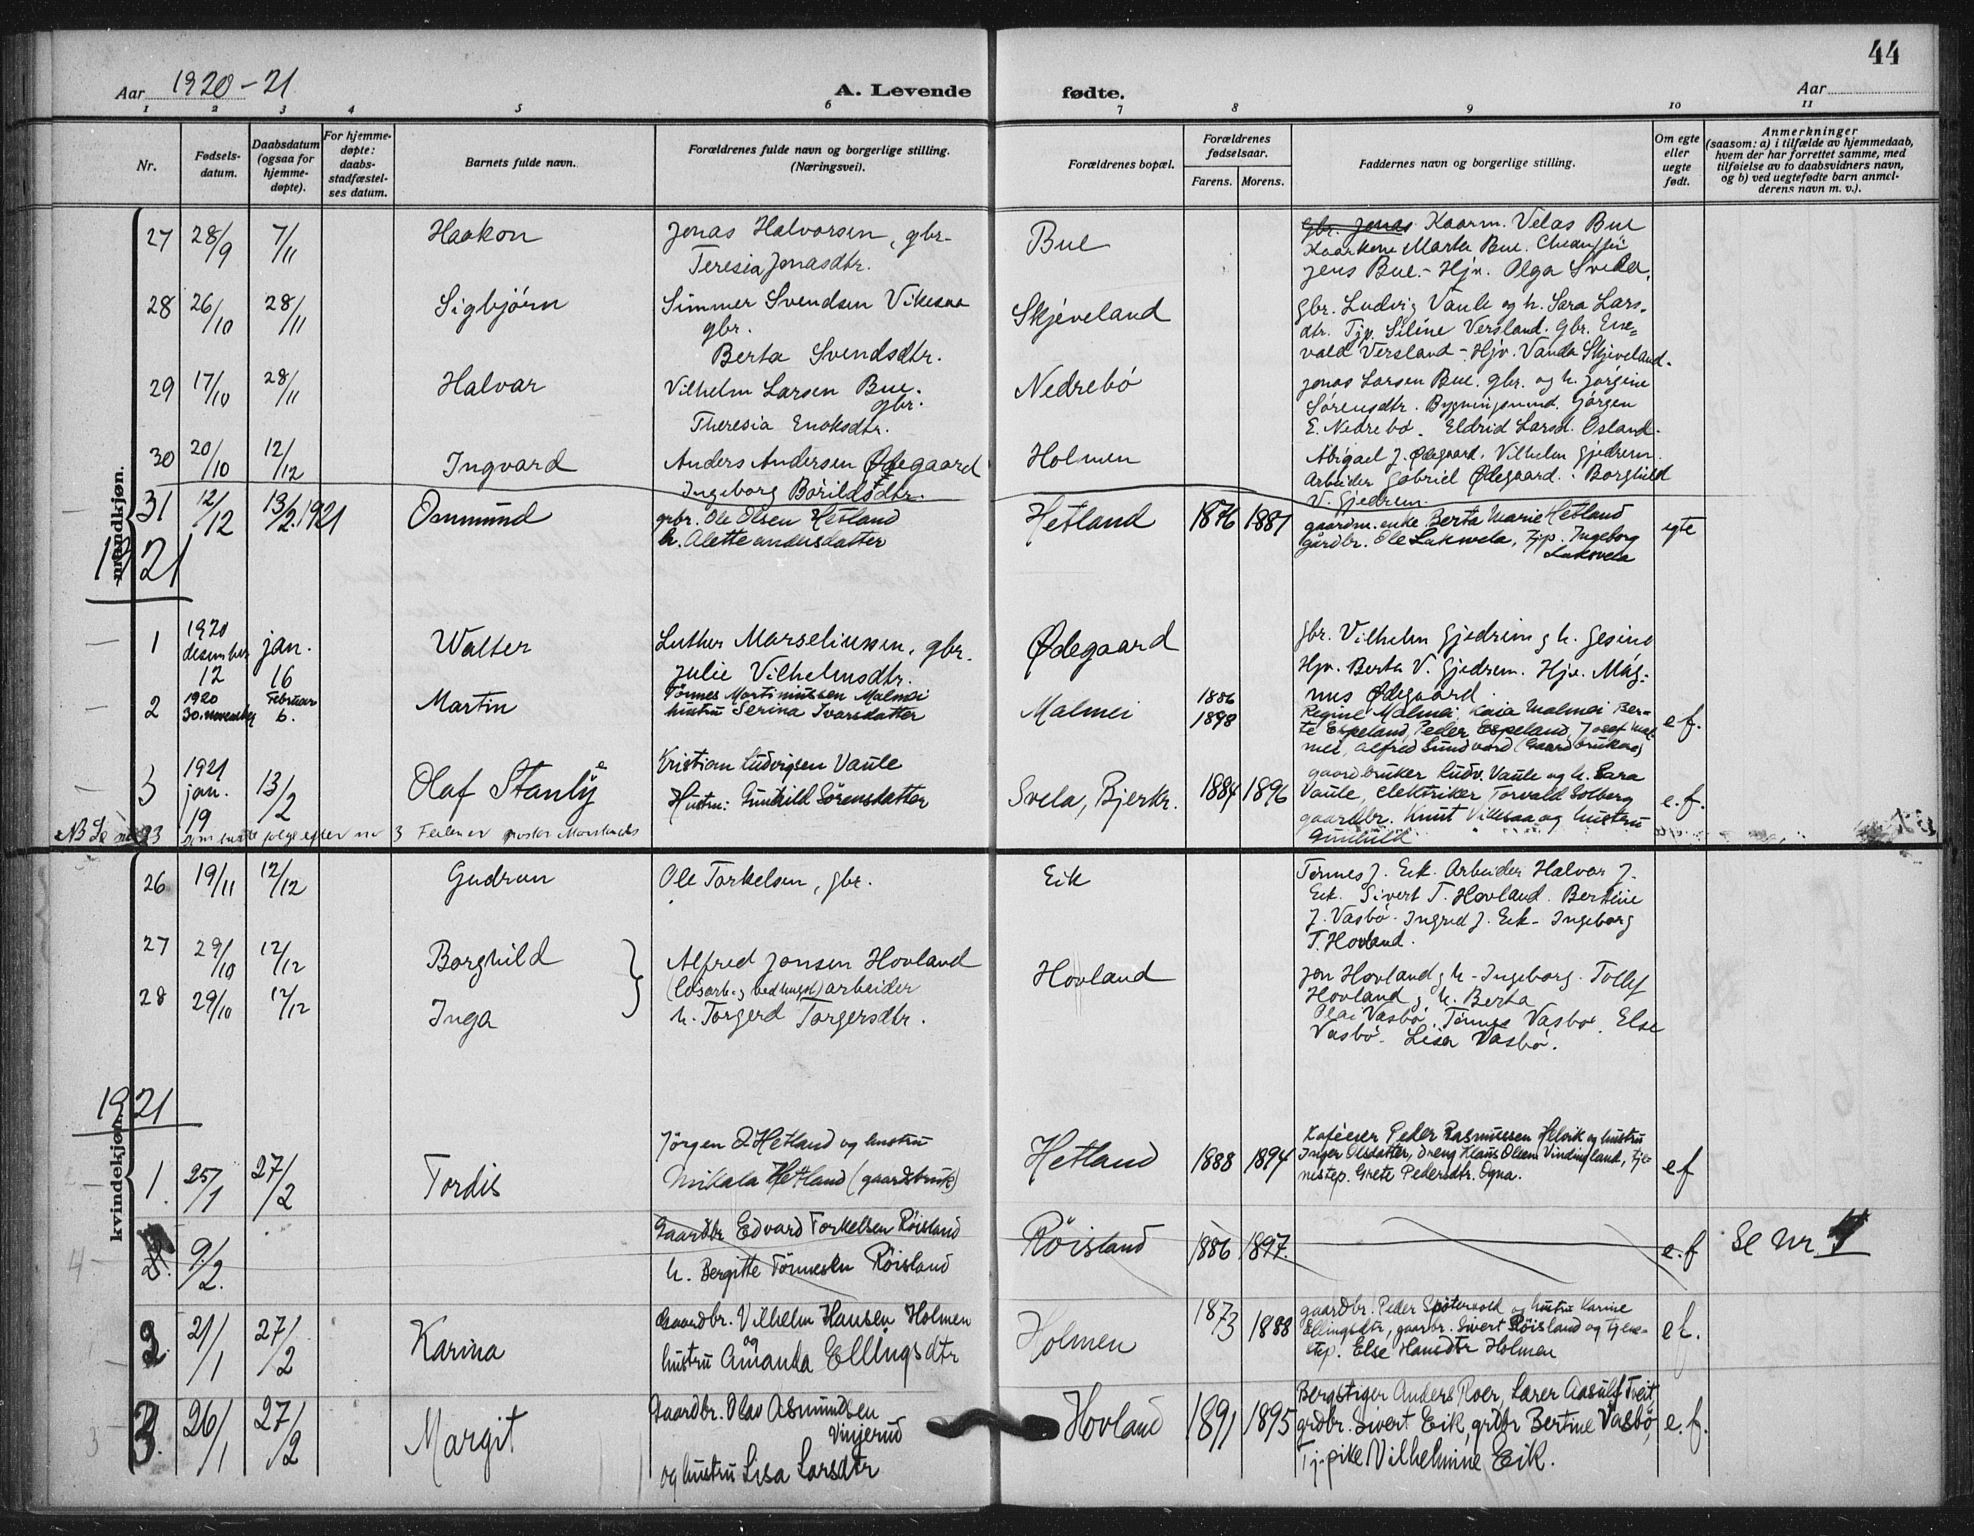 44
Aar 1920-21
A. Levende
fødte.
Aar
1 2 3 4 5 6 7 8 9 10 11
Nr.
Fødsels-
datum.
Daabsdatum
(ogsaa for
hjemme-
døpte).
For hjemme-
døpte:
daabs-
stadfæstel-
ses datum.
Barnets fulde navn.
Forældrenes fulde navn og borgerlige stilling.
(Næringsvei).
Forældrenes bopæl.
Forældrenes
fødselsaar.
Farens. Morens.
Faddernes navn og borgerlige stilling.
Om egte
eller
uegte
født.
Anmerkninger
(saasom: a) i tilfælde av hjemmedaab,
hvem der har forrettet samme, med
tilføielse av to daabsvidners navn,
og b) ved uegtefødte barn anmel-
derens navn m. v.).
mandkjøn.
27 28/9 7/11 Haakon
Jonas Halvorsen, gbr.
Teresia Jonasdtr.
Bue
Gbr. Jonas Kaarm. Velas Bue
Marta Bue.
Jens Bue - Hjv. Olga Svela.
28 26/10 28/11 Sigbjörn
Simmer Svendsen Vikesaa
gbr.
Berta Svendsdtr.
Skjeveland
gbr. Ludvig Vaule og h. Sara Lars-
dtr. Tjp. Siline Versland. Gbr. Ene=
vald Versland - Hjv. Vanda Skjeveland.
29 17/10 28/11 Halvar
Vilhelm Larsen Bue.
gbr.
Theresia Enoksdtr.
Nedrebö
Jonas Larsen Bue. gbr. og h. Jørgine
Sørensdtr. Bygningsmd. Jørgen
E. Nedrebø. Eldrid Larsd. Osland.
30 20/10 12/12 Ingvard
Anders Andersen Ødegaard
Ingeborg Börildsdtr.
Holmen
Abigael J. Ødegaard. Vilhelm Gjedrem.
Arbeider Gabriel Ødegaard. Borghild
V. Gjedrem.
31 12/12 13/2.1921 Osmund
grbr. Ole Olsen Hetland
h. Alette
Hetland
1876 1881
gaardm. enke Berta Marie Hetland
gårdbr. Ole Luksvela, Tjp. Ingeborg
Luksvela
egte
1921
1 1920
desember
12
jan.
16
Walter
Luther Marseliussen, gbr.
Julie Vilhelmsdtr.
Ødegaard
gbr. Vilhelm Gjedrem og h. Gesine
Hjv. Berta V. Gjedrem. Hjv. Mag-
nus Ødegaard.
2 1920
30. november
Februar
6.
Martin
Tönnes Martiniussen Malmei
hustru Serina Ivarsdatter
Malmei
1886
1898
Regine Malmei, Kaia Malmei Ber-
te Espeland, Peder Espeland, Josef Mal
mei, Alfred Sundvord (Gaardbrukere)
e f.
3 1921
jan.
19
13/2
Olaf Stanley
Kristian Ludvigsen Vaule
Hustru: Gunhild Sörensdatter
Svela, Bjerkr.
1884 1896
gaardbruker Ludv. Vaule og h. Sara
Vaule, elektriker Torvald Solberg
gaardbr. Knut Vikesaa og hustru
Gunhild
e. f.
kvindekjøn.
26 19/11 12/12 Gudrun
Ole Torkelsen, gbr.
Eik
Tønnes J. Eik. Arbeider Halvor J.
Eik. Sivert T. Hovland. Bertine
J. Vasbö. Ingred J. Eik - Ingeborg
T. Hovland.
27 29/10 12/12 Borghild
28 29/10 12/12 Inga
Alfred Jonsen Hovland
arbeider
h. Torgerd Torgersdtr.
Hovland
Jon Hovland og h. Ingeborg. Tollef
Hovland og h. Berta
Olai Vasbö. Tönnes Vasbø. Else
Vasbö. Lisa Vasbö.
1921
1. 25/1 27/2 Tordis
Jörgen O Hetland og hustru
Mikala Hetland (gaardbruk)
Hetland
1888 1894
Peder Rasmussen Helvik og hustru
Inger Olsdatter, dreng Klaus Olsen Vindingland, Tje-
nestep. Grete Pedersdtr. Ogna.
e f
2. 9/2.
Gaardbr Edvard Torkelsen Röisland
h. Bergitte Tönnesen Röisland
Röisland
1886 1897.
e. f
Se Nr 4
2 21/1 27/2 Karina
Gaardbr. Vilhelm Hansen Holmen
og
hustru Amanda Ellingsdtr
Holmen
1873 1888
gaardbr. Peder Spötevold og hustru Karine
Ellingsdtr, gaarbr. Sivert Röisland og tjene-
step. Else Hansdtr Holmen
e f.
3. 26/1 27/2 Margit
Gaardbr. Olav Asmundsen
Vinjerud
og hustru Lisa Larsdtr
Hovland
1891 1895
Bergstiger Anders Roer, Lærer Aasulf Tveit,
grdbr. Sivert Eik, grdbr Bertine Vasbö,
Tj.pike Vilhelmine Eik.
e. f.